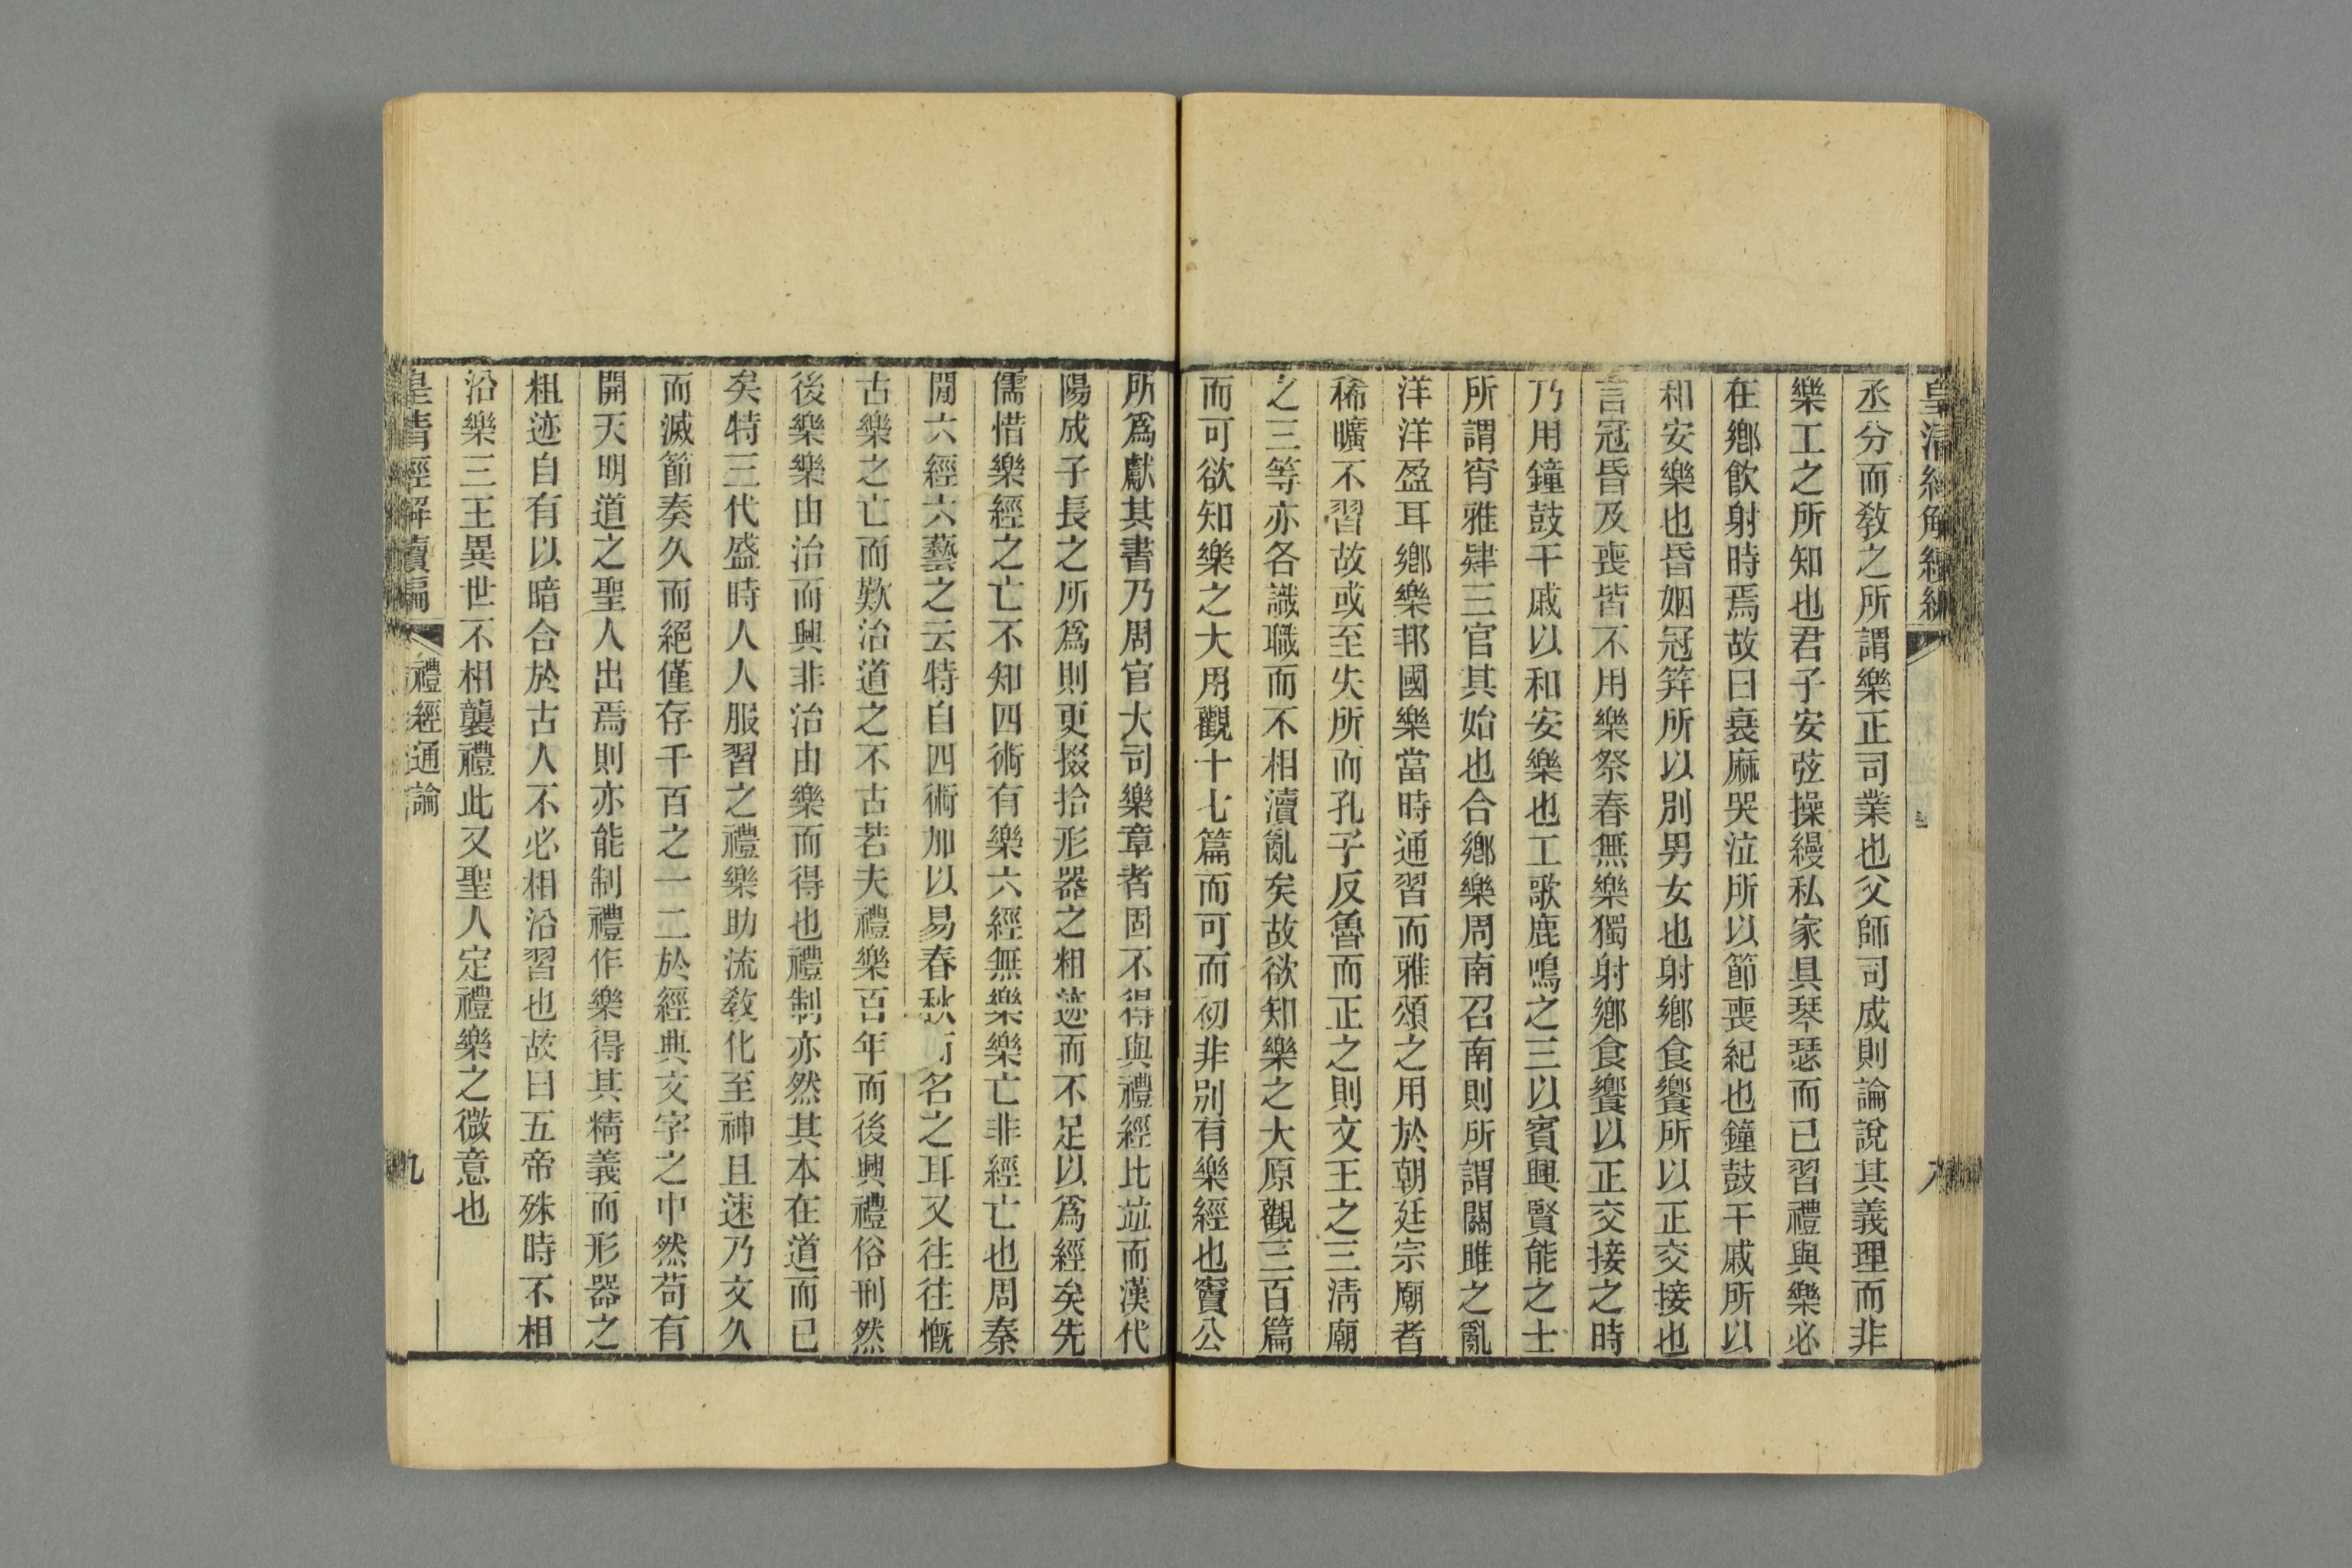 丞分而敎之所謂樂正司業也父師司成則論說其義理而非
樂工之所知也君子安弦操縵私家具琴瑟而已習禮與樂必
在鄕飮射時焉故曰衰麻哭泣所以節喪紀也鐘鼓干戚所以
和安樂也昏姻冠筓所以別男女也射鄕食饗所以正交接也
言冠昏及喪皆不用樂祭春無樂獨射鄕食饗以正交接之時
乃用鐘鼓干戚以和安樂也工歌鹿鳴之三以賓興賢能之士
所謂宵雅肄三官其始也合鄕樂周南召南則所謂關雎之亂
洋洋盈耳鄕樂邦國樂當時通習而雅頌之用於朝廷宗廟者
稀曠不習故或至失所而孔子反魯而正之則文王之三淸廟
之三等亦各識職而不相瀆亂矣故欲知樂之大原觀三百篇
而可欲知樂之大用觀十七篇而可而初非別有樂經也竇公
所爲獻其書乃周官大司樂章者固不得與禮經比竝而漢代
陽成子長之所爲則更掇拾形器之粗迹而不足以爲經矣先
儒惜樂經之亡不知四術有樂六經無樂樂亡非經亡也周秦
閒六經六藝之云特自四術加以易春秋而名之耳又往往慨
古樂之亡而歎治道之不古若夫禮樂百年而後興禮俗刑然
後樂樂由治而興非治由樂而得也禮制亦然其本在道而已
矣特三代盛時人人服習之禮樂助流敎化至神且速乃文久
而滅節奏久而絕僅存千百之一二於經典文字之中然苟有
開天明道之聖人出焉則亦能制禮作樂得其精義而形器之
粗迹自有以暗合於古人不必相沿習也故曰五帝殊時不相
沿樂三王異世不相襲禮此又聖人定禮樂之微意也
皇淸經解續編
禮經通論
九